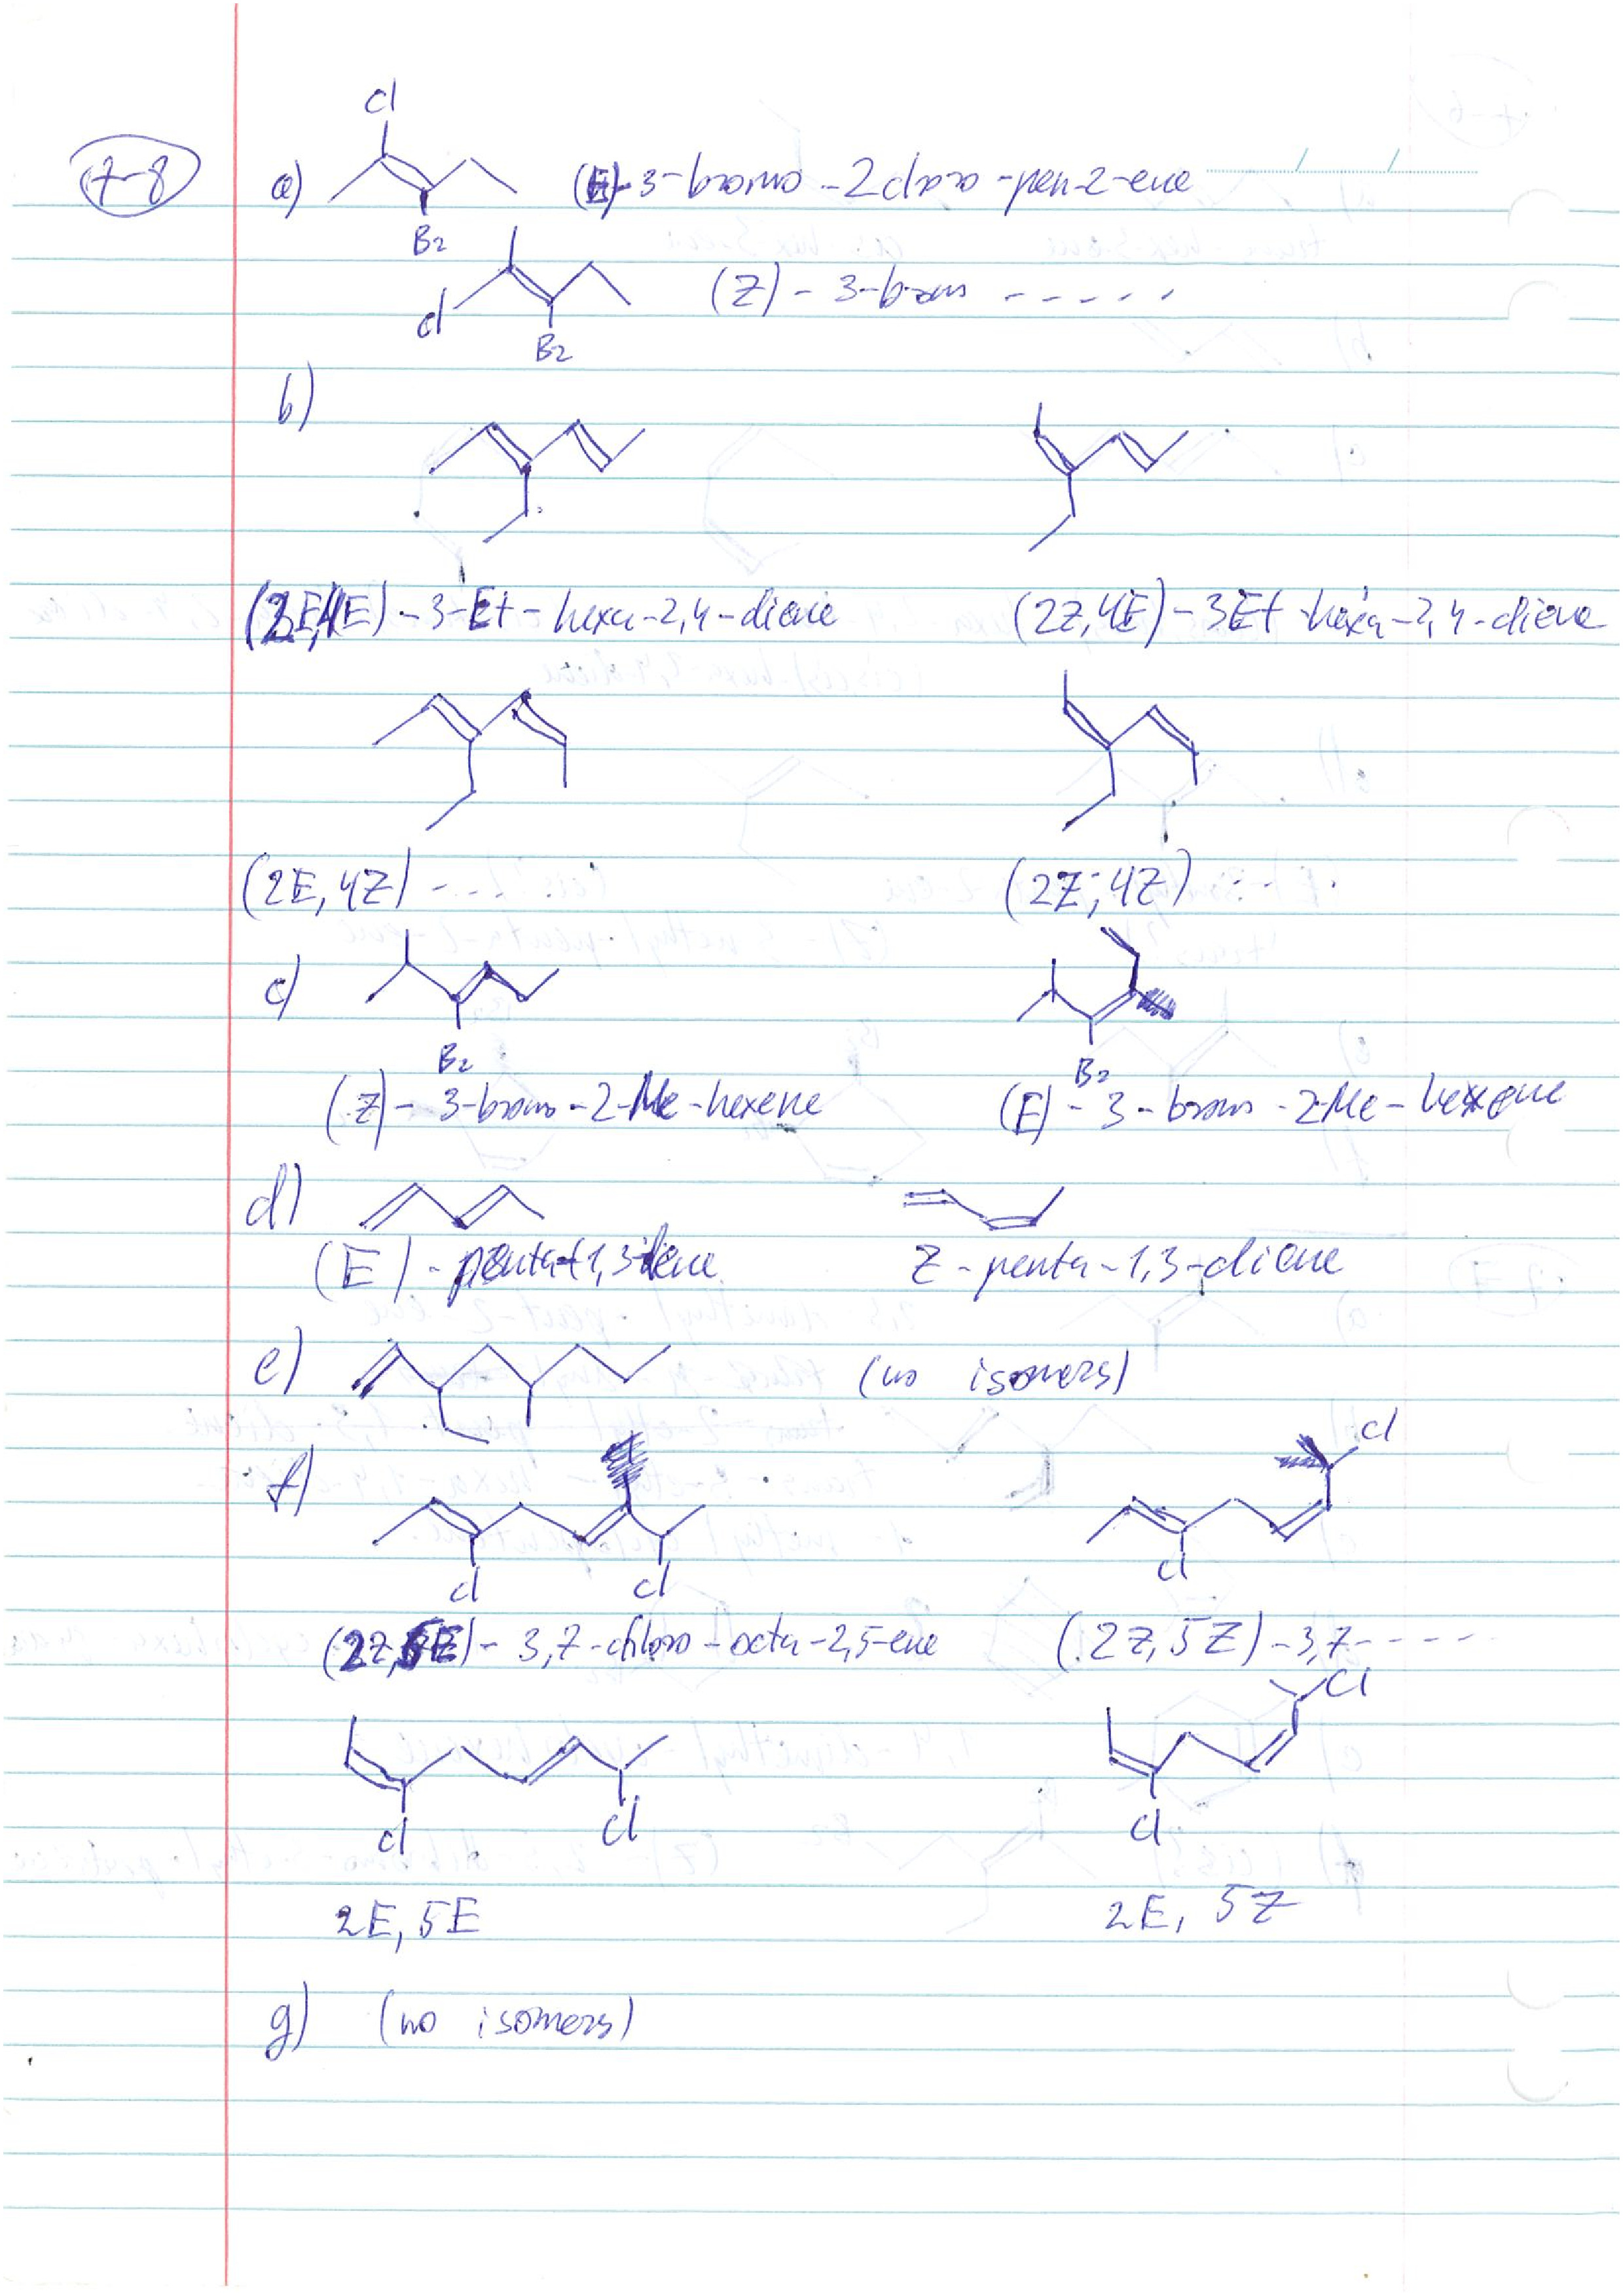 7-8
Cl
a) (E)-3-bromo-2chloro-pen-2-ene
Br
Cl (Z)-3-brom -----
Br
b)
(2E,4E)-3-Et-hexa-2,4-diene (2Z,4E)-3Et-hexa-2,4-diene
(2E,4Z)---- (2Z,4Z)---
c)
Br Br
(Z)-3-bromo-2-Me-hexene (E)-3-bromo-2-Me-hexene
d)
(E)-penta-1,3-diene Z-penta-1,3-diene
e) (no isomers)
Cl
f)
Cl Cl Cl
(2Z,5E)-3,7-chloro-octa-2,5-ene (2Z,5Z)-3,7-----
Cl
Cl Cl Cl
2E, 5E 2E, 5Z
g) (no isomers)